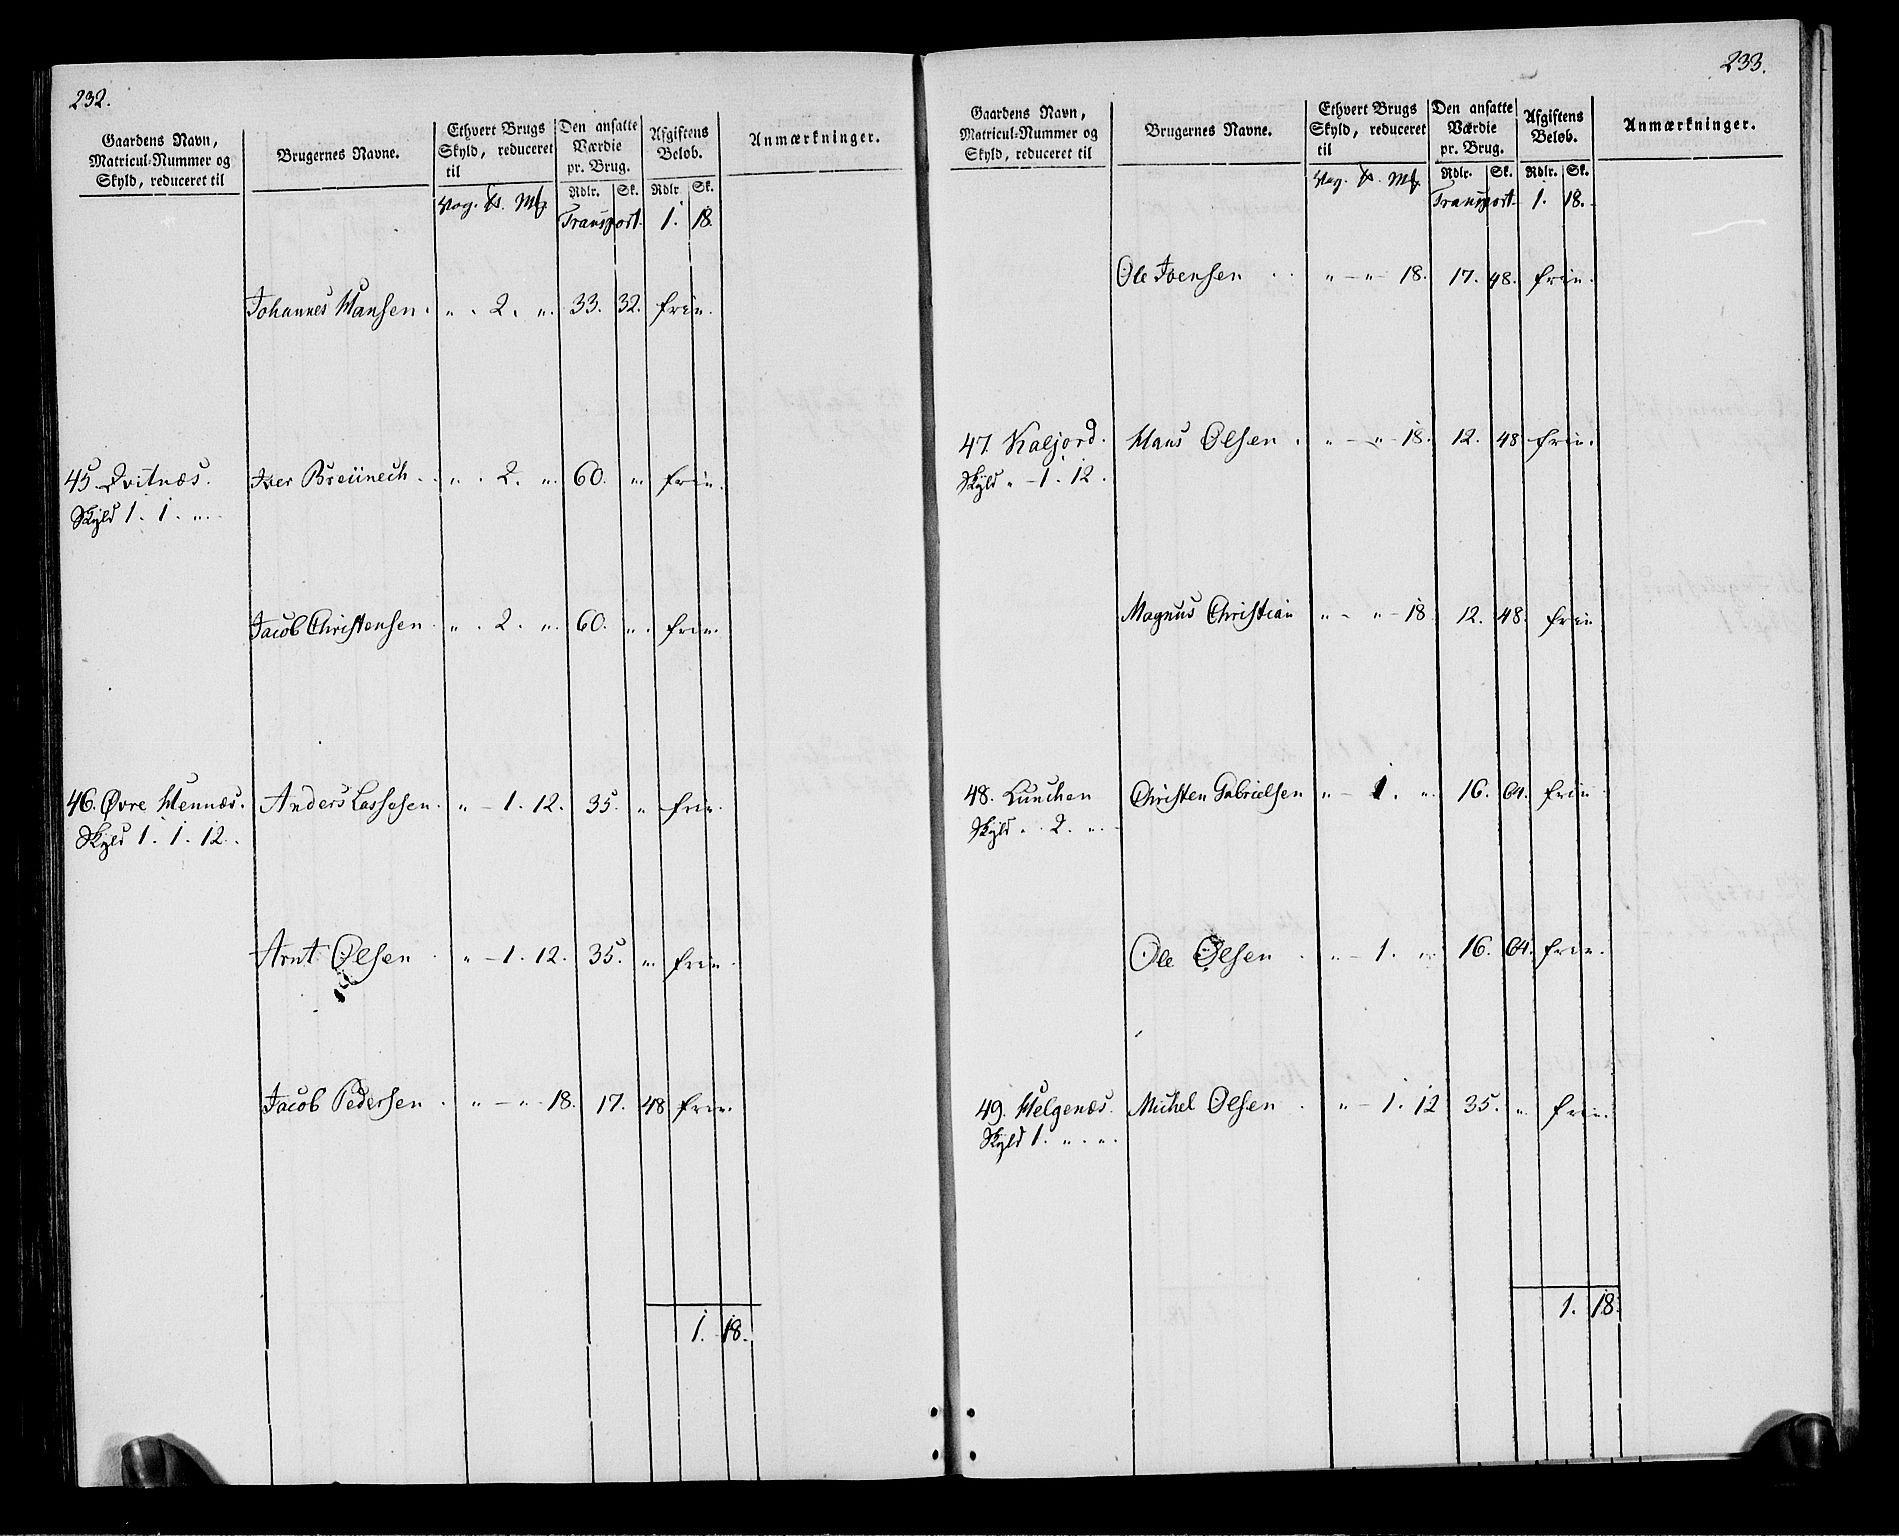 232.
Gaardens Navn, Matricul-Nummer og Skyld, reduceret til
Brugernes Navne.
Ethvert Brugs Skyld, reduceret til
Den ansatte Værdie pr. Brug.
Afgiftens Beløb.
Anmærkninger.
Vog. ℔. Mk Rdlr. Sk. Rdlr. Sk.
Transport. 1. 18.
Johannes Hansen. " . 2. " . 33. 32. frie.
45. Qvitnæs. Iver Breünech . " . 2. " . 60. " . frie.
Skyld 1. 1. " .
Jacob Christensen. " . 2. " . 60. " . frie.
46. Øvre Hennæs. Anders Lassesen. " – 1. 12. 35. " frie.
Skyld 1. 1. 12.
Arnt Olsen " – 1. 12. 35. " . frie.
Jacob Pedersen. " – " – 18. 17. 48 frie.
1. 18.
233.
Gaardens Navn, Matricul-Nummer og Skyld, reduceret til
Brugernes Navne.
Ethvert Brugs Skyld, reduceret til
Den ansatte Værdie pr. Brug.
Afgiftens Beløb.
Anmærkninger.
Vog. ℔. Mk. Rdlr. Sk. Rdlr. Sk.
Transport. 1. 18.
Ole Iversen . . " – " – 18. 17. 48. frie.
47. Kaljord. Hans Olsen . " – " – 18. 12. 48 frie.
Skyld " – 1. 12.
Magnus Christian " – " – 18. 12. 48. frie
48. Lunchen Christen Gabrielsen " – 1. " . 16. 64. frie
Skyld " . 2. " .
Ole Olsen . " – 1. " . 16. 64. frie.
49. Helgenæs. Michel Olsen . " – 1. 12 35. " frie.
Skyld 1. " . " .
1. 18.